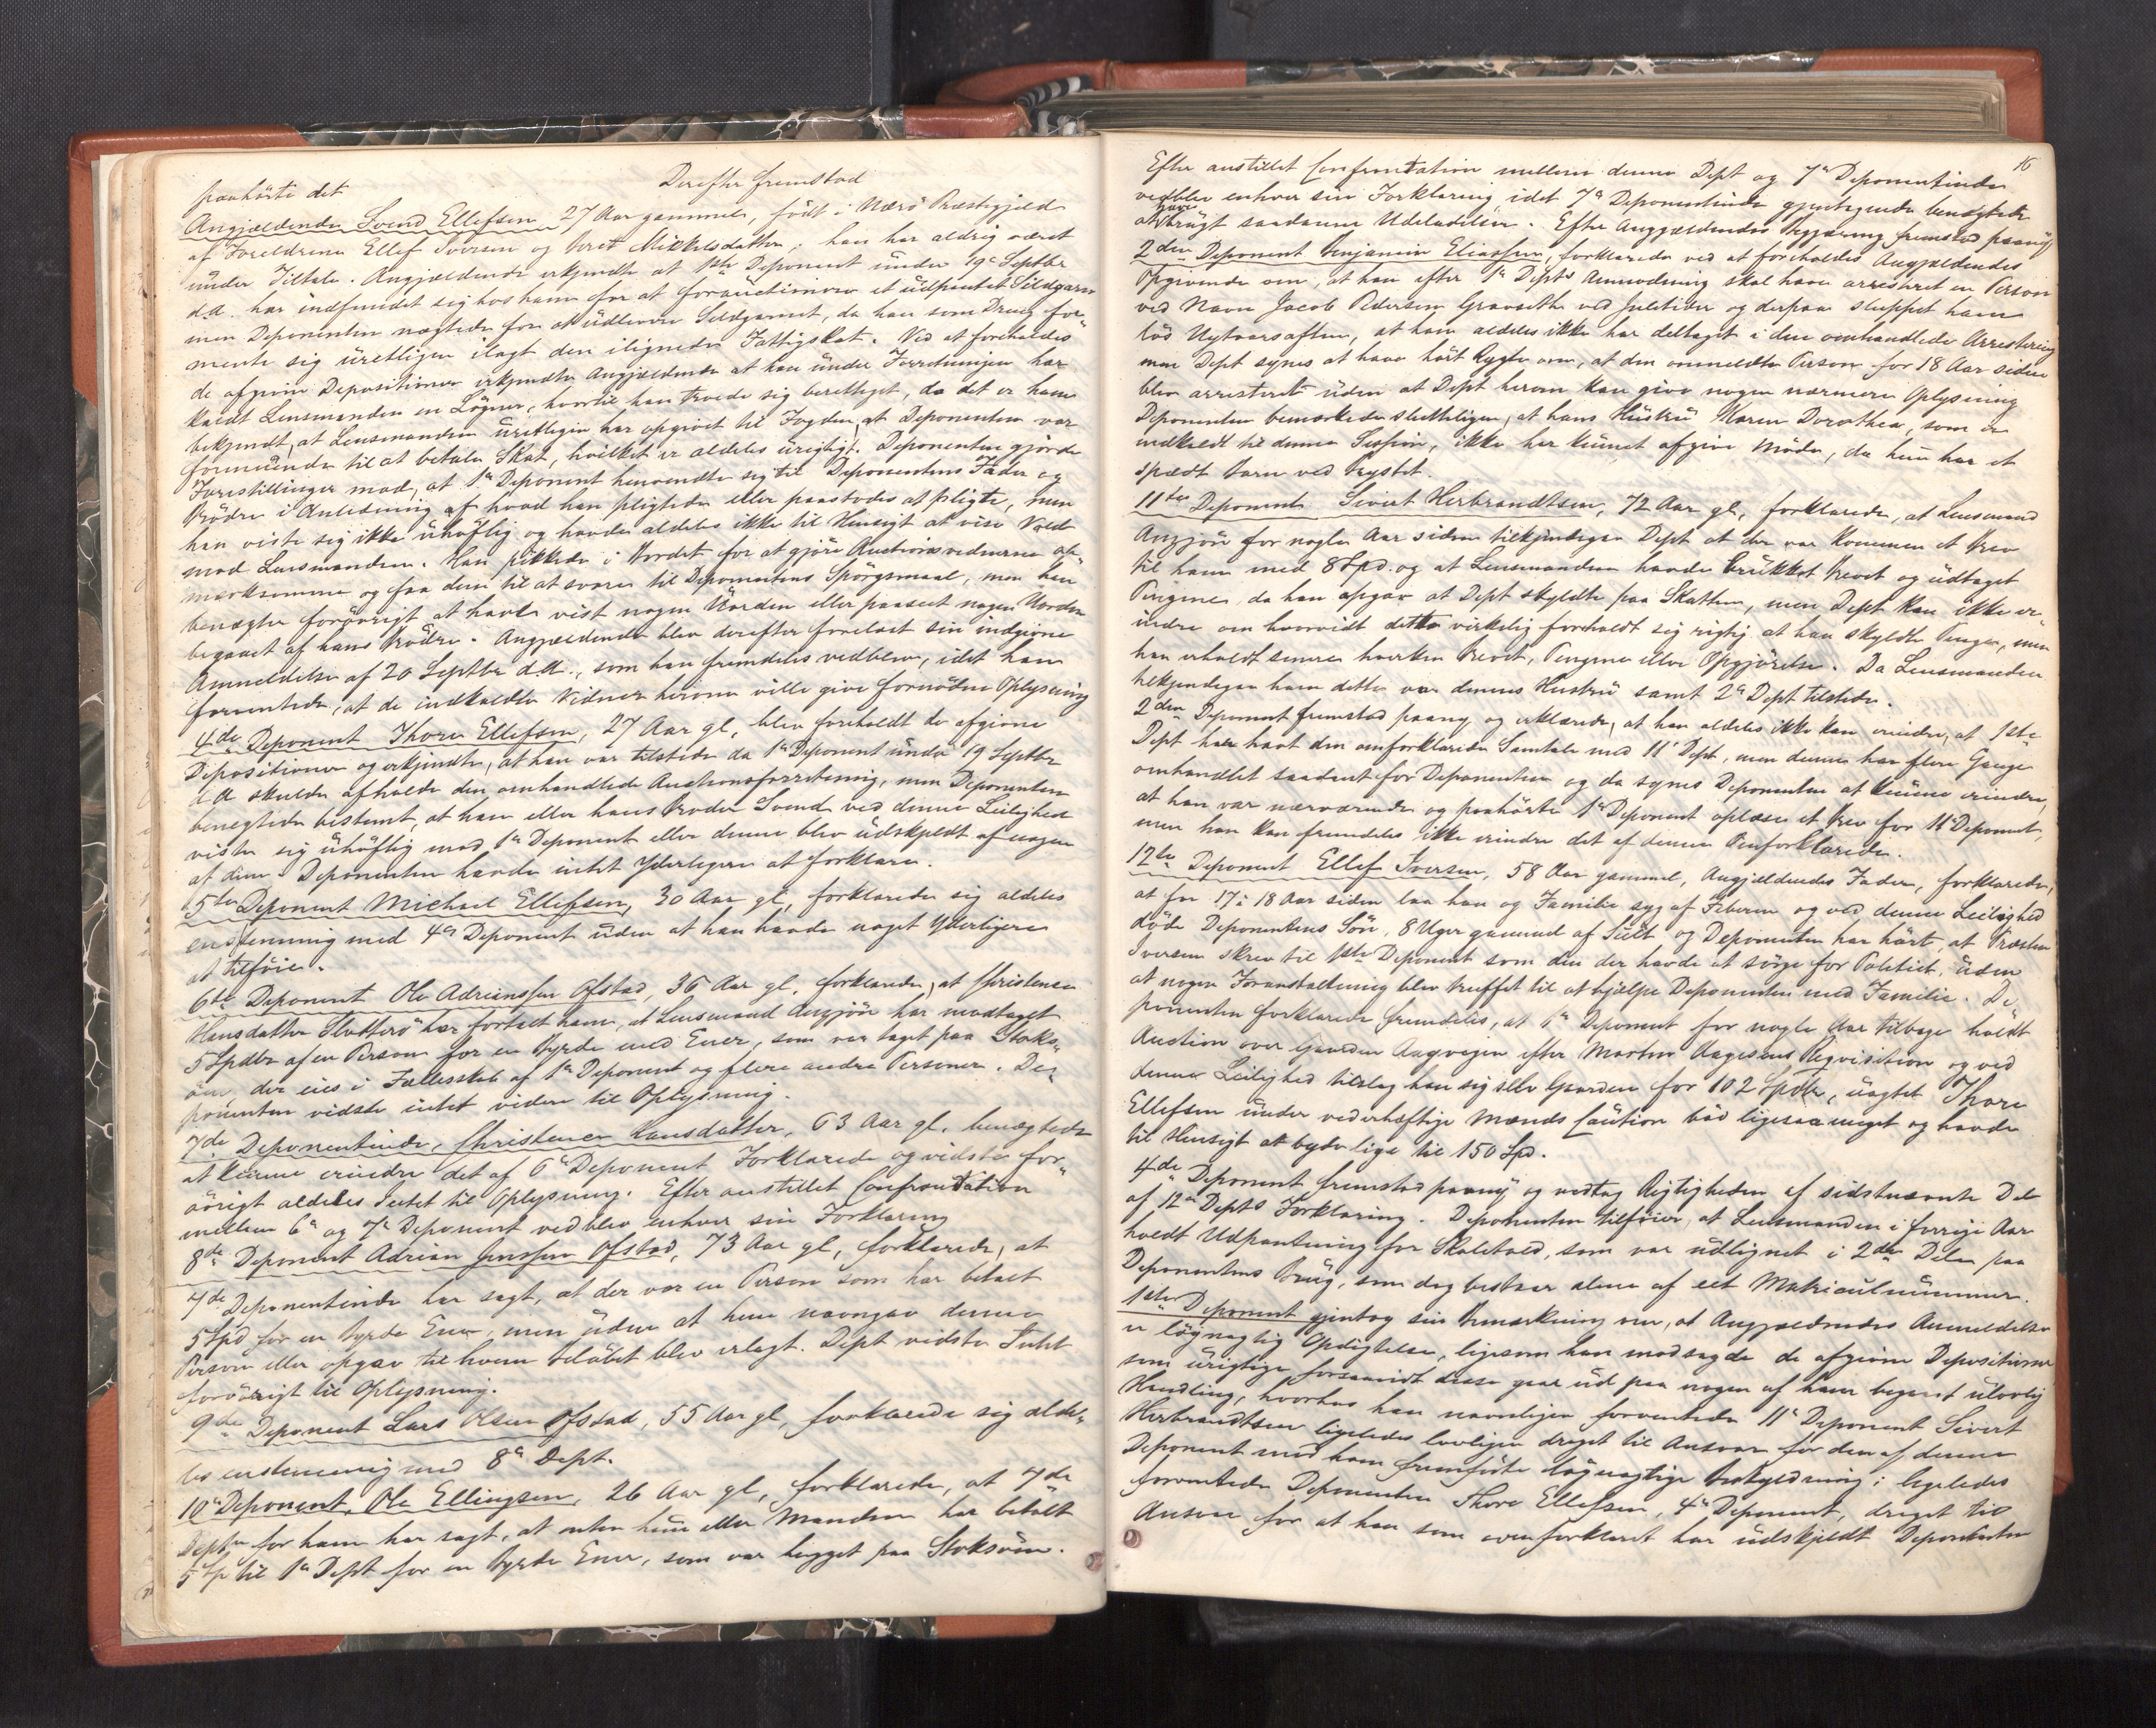 paahörte det
Derefter fremstod
Angjældende Svend Ellefsen 27 Aar gammel, födt i Nærö Præstegjeld
af Foreldrene Ellef Iversen og Beret Mikkelsdatter; han har aldrig været
under Tiltale. Angjældende erkjendte at 1ste Deponent under 19de Septbr
d.A. har indfundet sig hos ham for at forauctionere et udpantet Sildgarn
men Deponenten nægtede for at udlevere Sildgarnet, da han som Dreng for-
mente sig uretligen ilagt den ilignede Fattigskat. Ved at foreholdes
de afgivne Depositioner erkjendte Angjældende at han under Forretningen har
kaldt Lensmanden en Lögner, hvortil han troede sig berettiget, da det er ham
bekjendt, at Lensmanden uretligen har opgivet til Fogden at Deponenten var
formuende til at betale Skat, hvilket er aldeles urigtigt. Deponenten gjorde
Forestillinger mod, at 1ste Deponent henvendte sig til Deponentens Fader og
Brödre i Anledning af hvad han pligtede eller paastodes at pligte, men
han viste sig ikke uhöflig og havde aldeles ikke til Hensigt at vise Vold
mod Lensmanden. Han pikkede i Bordet for at gjöre Auctionsvidnerne op-
mærksomme og faa dem til at svare til Deponentens Spörgsmaal, men han
benægter forövrigt at have vist nogen Uorden eller paaseet nogen Uorden
begaaet af hans Brödre. Angjældende blev derefter forelæst sin indgivne
Anmeldelse af 20 Septbr d.A., som han fremdeles vedblev, idet han
forventede, at de indkaldte Vidner herom ville give fornöden Oplysning
4de Deponent Thore Ellefsen, 27 Aar gl, blev foreholdt de afgivne
Depositioner og erkjendte, at han var tilstede da 1ste Deponent under 19 Septbr
d A skulde afholde den omhandlede Auctionsforretning, men Deponenten
benegtede bestemt, at han eller hans Broder Svend ved denne Leilighed
viste sig uhöflig mod 1ste Deponent eller denne blev udskjeldt af nogen
af dem. Deponenten havde intet Yderligere at forklare.
5te Deponent Michael Ellefsen, 30 Aar gl, forklarede sig aldeles
enstemmig med 4de Deponent uden at han havde noget Yderligere
at tilföie.
6te Deponent Ole Adrianssen Ofstad, 36 Aar gl. forklarede, at Christence
Hansdatter Sletterö har fortalt ham, at Lensmand Angjör har modtaget
5 Spdlr af en Person for en Byrde med Ener, som var taget paa Stoks-
öen, der eies i Fællesskab af 1ste Deponent og flere andre Personer. De-
ponenten vidste intet videre til Oplysning.
7de Deponentinde, Christence Hansdatter, 63 Aar gl. benægtede
at kunne erindre det af 6te Deponent Forklarede og vidste for-
övrigt aldeles Intet til Oplysning. Efter anstillet Confrontation
mellem 6te og 7de Deponent vedblev enhver sin Forklaring
8de Deponent Adrian Jenssen Ofstad, 73 Aar gl, forklarede, at
7de Deponentinde har sagt, at der var en Person som har betalt
5 Spd for en Byrde Ener, men uden at hun navngav denne
Person eller opgav til hvem Belöbet blev erlagt. Dept vidste Intet
forövrigt til Oplysning.
9de Deponent Lars Olsen Ofstad, 55 Aar gl, forklarede sig alde-
les enstemmig med 8de Dept.
10de Deponent, Ole Ellingsen, 26 Aar gl, forklarede, at 7de
Dept for ham har sagt, at enten hun eller Manden har betalt
5 Sp til 1ste Dept for en Byrde Ener, som var hugget paa Stoksöen.
16
Efter anstillet Confrontation mellem denne Dept og 7de Deponentinde
vedblev enhver sin Forklaring, idet 7de Deponentinde gjentagende benægtede
at have brugt saadanne Udeladelser. Efter Angjældendes Begjæring fremstod paany
2den Deponent Benjamin Eliassen, forklarede ved at foreholdes Angjældendes
Opgivende om, at han efter 1ste Depts Anmodning skal have arresteret en Person
ved Navn Jacob Pedersen Gravseth ved Juletider og derpaa sluppet ham
lös Nytaarsaften, at han aldeles ikke har deltaget i den omhandlede Arrestering
men Dept synes at have hört Rygte om, at den ommeldte Person for 18 Aar siden
blev arresteret uden at Dept herom kan give nogen nærmere Oplysning
Deponenten bemærkede slutteligen, at hans Hustru Maren Dorothea, som er
indkaldt til denne Session, ikke har kunnet afgive Möde, da hun har et
spædt Barn ved Brystet.
11te Deponent Sivert Herbrandtsen, 72 Aar gl, forklarede, at Lensmand
Angjör for nogle Aar siden tilkjendegav Dept at der var kommen et Brev
til ham med 8 Spd. og at Lensmanden havde brukket Brevet og udtaget
Pengene, da han opgav at Dept skyldte paa Skatten, men Dept kan ikke er-
indre om hvorvidt dette virkelig forholdt sig rigtig at han skyldte Penge, men
han erholdt senere hverken Brevet, Pengene eller Opgjörelse. Da Lensmanden
tilkjendegav ham dette var dennes Hustru samt 2den Dept tilstede.
2den Deponent fremstod paany og erklærede, at han aldeles ikke kan erindre, at 1ste
Dept har havt den omforklarede Samtale med 11te Dept, men denne har flere Gange
omhandlet saadant for Deponenten og da synes Deponenten at kunne erindre,
at han var nærværende og paahörte 1ste Deponent oplæse et Brev for 11te Deponent,
men han kan fremdeles ikke erindre det af denne Omforklarede.
12te Deponent Ellef Iversen, 58 Aar gammel, Angjældendes Fader, forklarede,
at for 17 à 18 Aar siden laa han og Familie syg af Feberen og ved denne Leilighed
döde Deponentens Sön, 8 Uger gammel af Sult og Deponenten har hört, at Præsten
Iversen skrev til 1ste Deponent som den der havde at sörge for Politiet, uden
at nogen Foranstaltning blev truffet til at hjælpe Deponenten med Familie. De-
ponenten forklarede fremdeles, at 1ste Deponent for nogle Aar tilbage holdt
Auction over Gaarden Aagvigen efter Morten Aagesens Reqvisition og ved
denne Leilighed tilslog han sig selv Gaarden for 102 Spdlr, uagtet Thore
Ellefsen under vederhæftige Mænds Caution böd ligesaameget og havde
til Hensigt at byde lige til 150 Spd.
4de Deponent fremstod paany og vedtog Rigtigheden af sidstnævnte Del
af 12te Depts Forklaring. Deponenten tilföier, at Lensmanden i forrige Aar
holdt Udpantning for Skoletold, som var udlignet i 2de Dele paa
Deponentens Brug, som dog bestaar alene af eet Matriculnummer.
1ste Deponent gjentog sin Bemærkning om, at Angjældendes Anmeldelse
er lögnagtig Opdigtelse, ligesom han modsagde de afgivne Depositioner
som urigtige forsaavidt disse gaar ud paa nogen af ham begaaet ulovlig
Handling, hvorhos han navnligen forventede 11te Deponent Sivert
Herbrandtsen ligeledes lovligen draget til Ansvar for den af denne
Deponent mod ham fremförte lögnagtige Beskyldning; ligeledes
forventede Deponenten Thore Ellefsen, 4de Deponent, draget til
Ansvar for at han som ovenforklaret har udskjeldt Deponenten